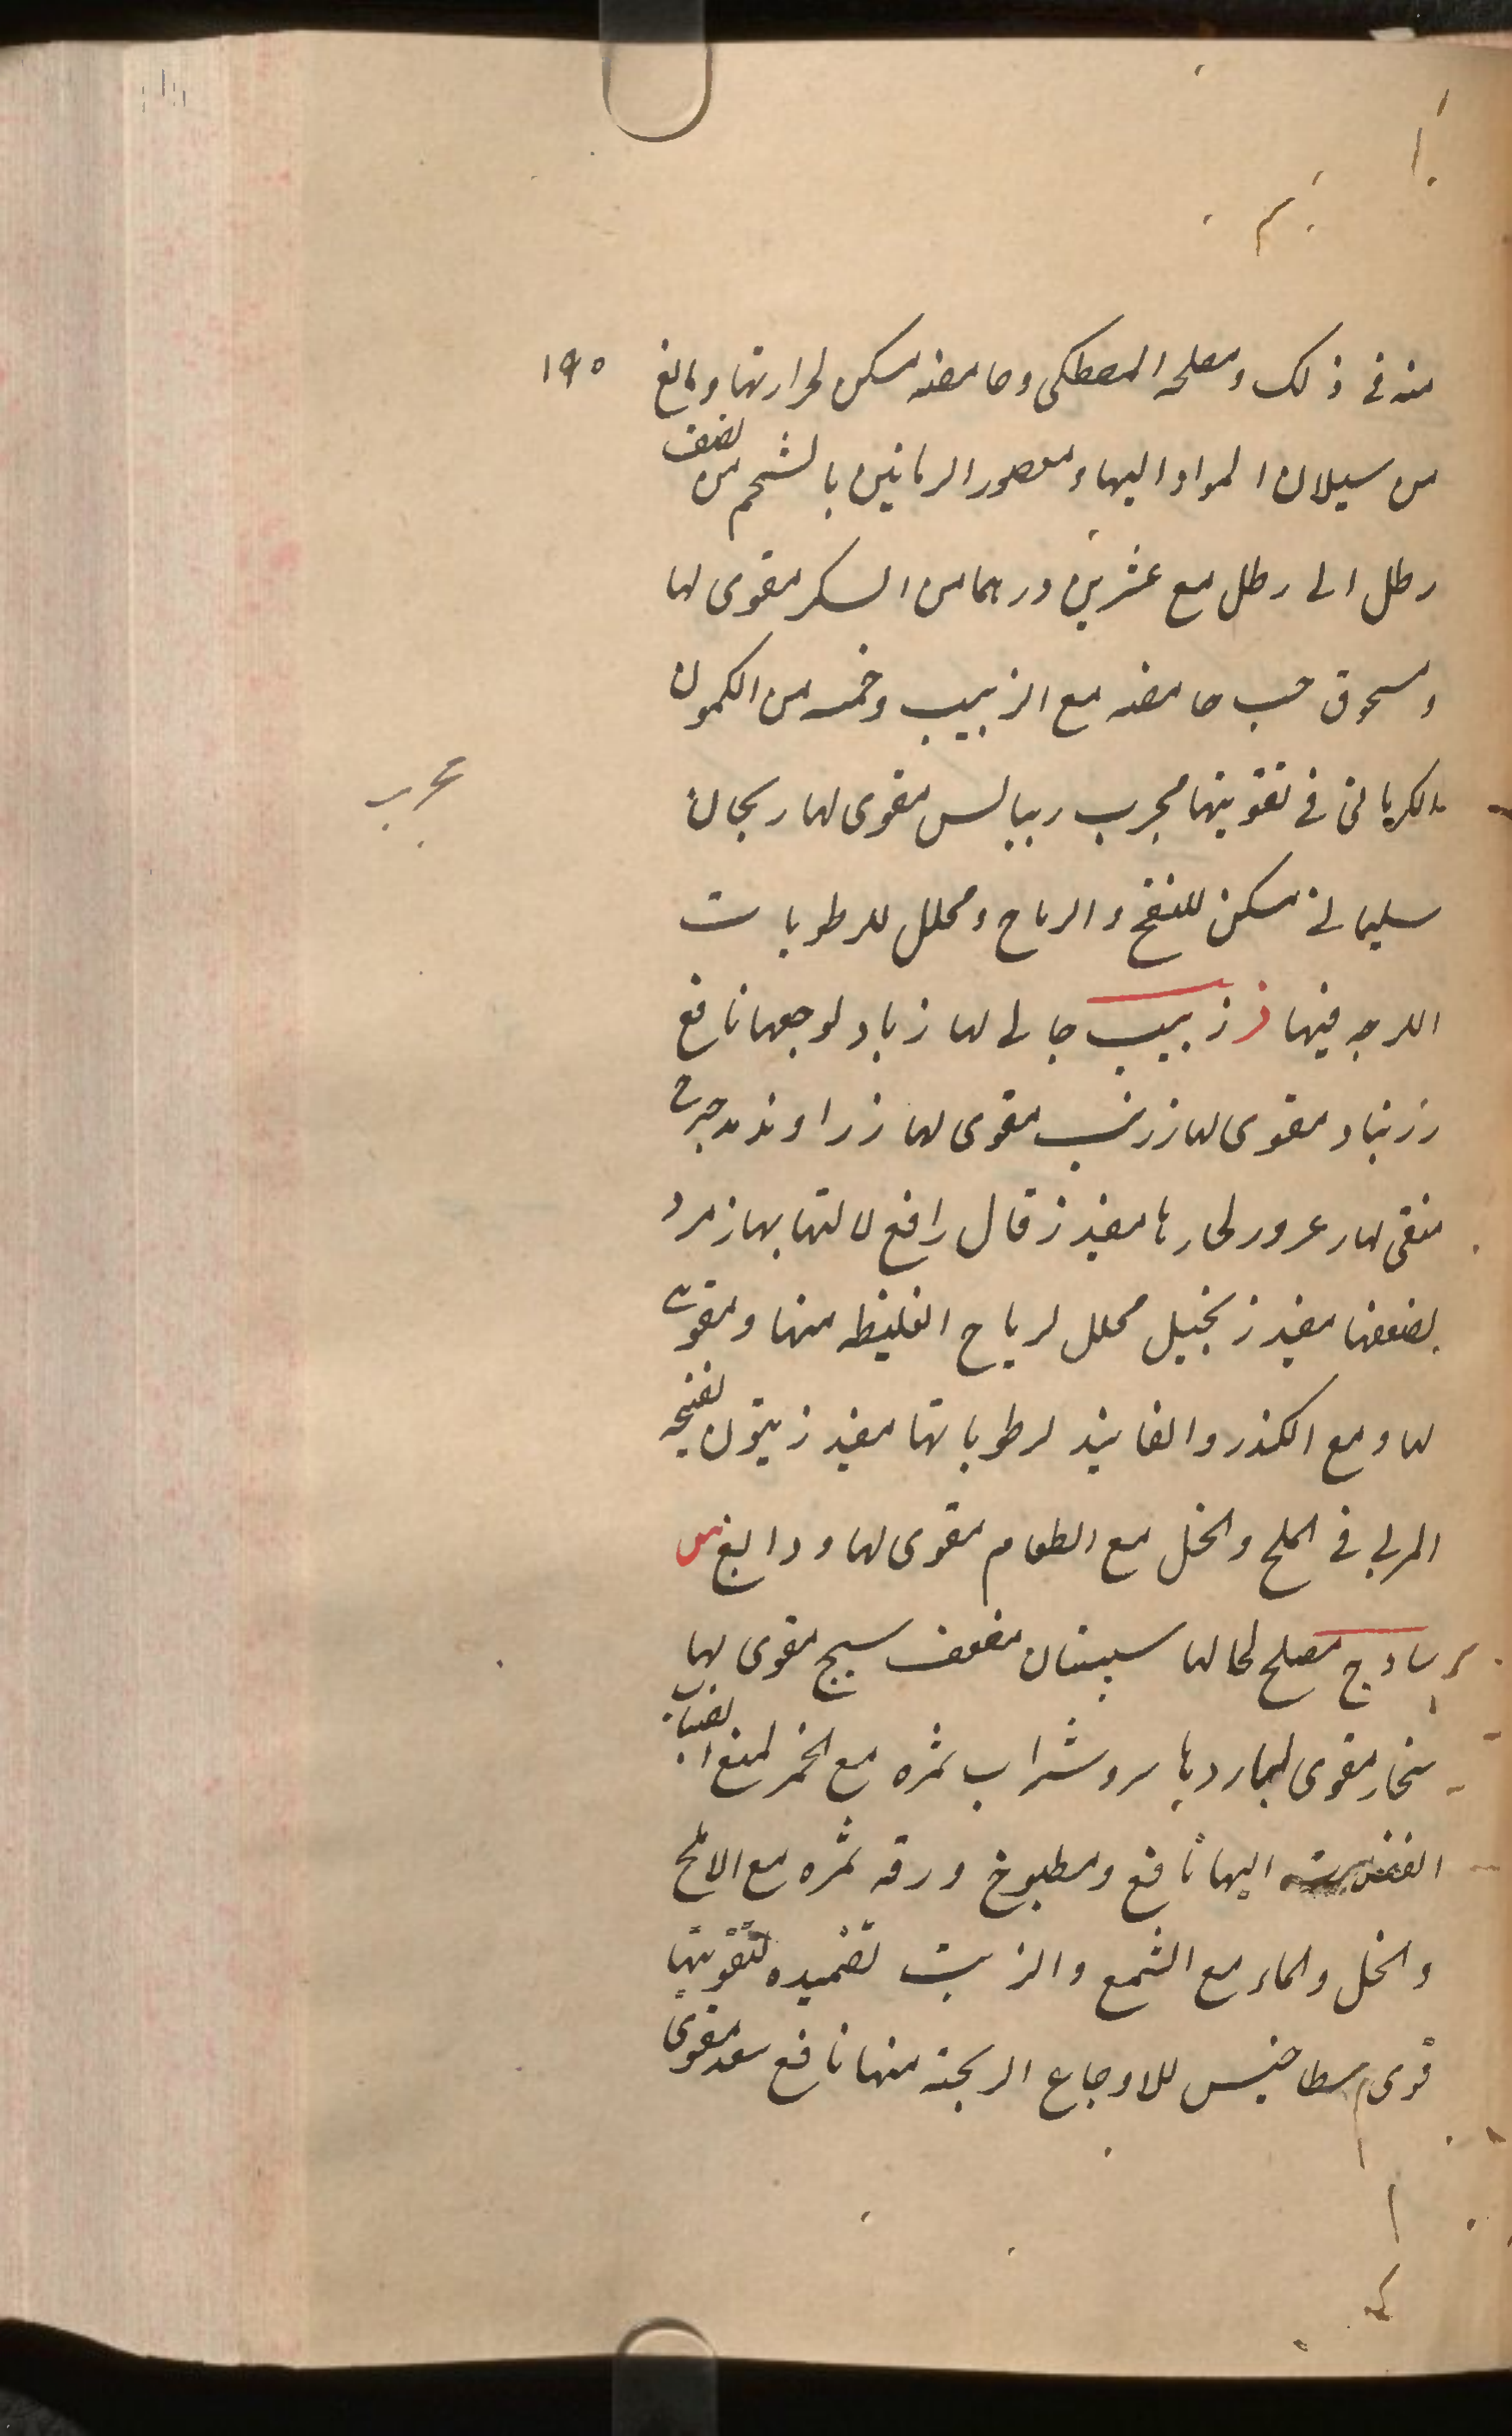 ١٩٥
منه فی ذلک ومصلحه المصطکی وحامضه مسکن لحرارتها ومانع
من سیلان المواد الیها ومعصور الرمانین بالشحم من نصف
رطل الی رطل مع عشرین درهما من السکر مقوی لها
ومسحوق حب حامضه مع الزبیب وخمسه من الکمون
الکرمانی فی تقویتها مجرب ریباس مقوی لها ریحان
مجرب
سلیمانی مسکن للنفخ والریاح ومحلل للرطوبات
اللزجه فیها ز زبیب جالی لها زباد لوجعها نافع
زرنباد مقوی لها زرنب مقوی لها زراوند مدحرج
منقی لها زعرور لحارها مفید زقال رافع لالتهابها زمرد
لضعفها مفید زنجبیل محلل لریاح الغلیظه منها ومقوی
لها ومع الکندر والفانید لرطوباتها مفید زیتون لفیجه
المربی فی الملح والخل مع الطعام مقوی لها ودابغ س
سادج مصلح لحالها سپستان مضعف سبج مقوی لها
مقوی لباردها سرو شراب ثمره مع الخمر لمنع انصباب
الیها نافع ومطبوخ ورقه ثمره مع الاملج
والخل والماء مع الشمع والزیت تضمیده لتقویتها
قوی سطاخیس للاوجاع الریحیة منها نافع سعد مقوی